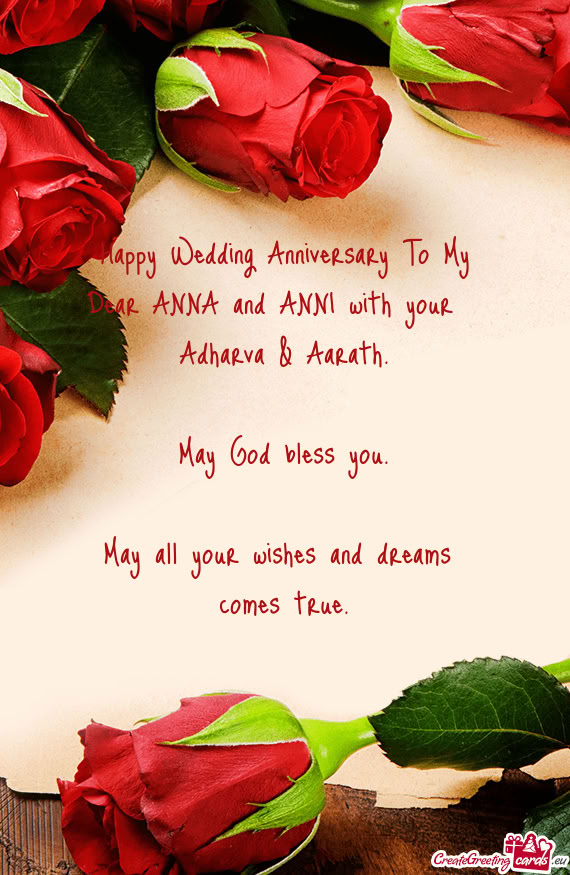 Happy Wedding Anniversary To My
Dear ANNA and ANNI with your
Adharva & Aarath.
May God bless you.
May all your wishes and dreams
comes true.
CreateGreetingcards.eu